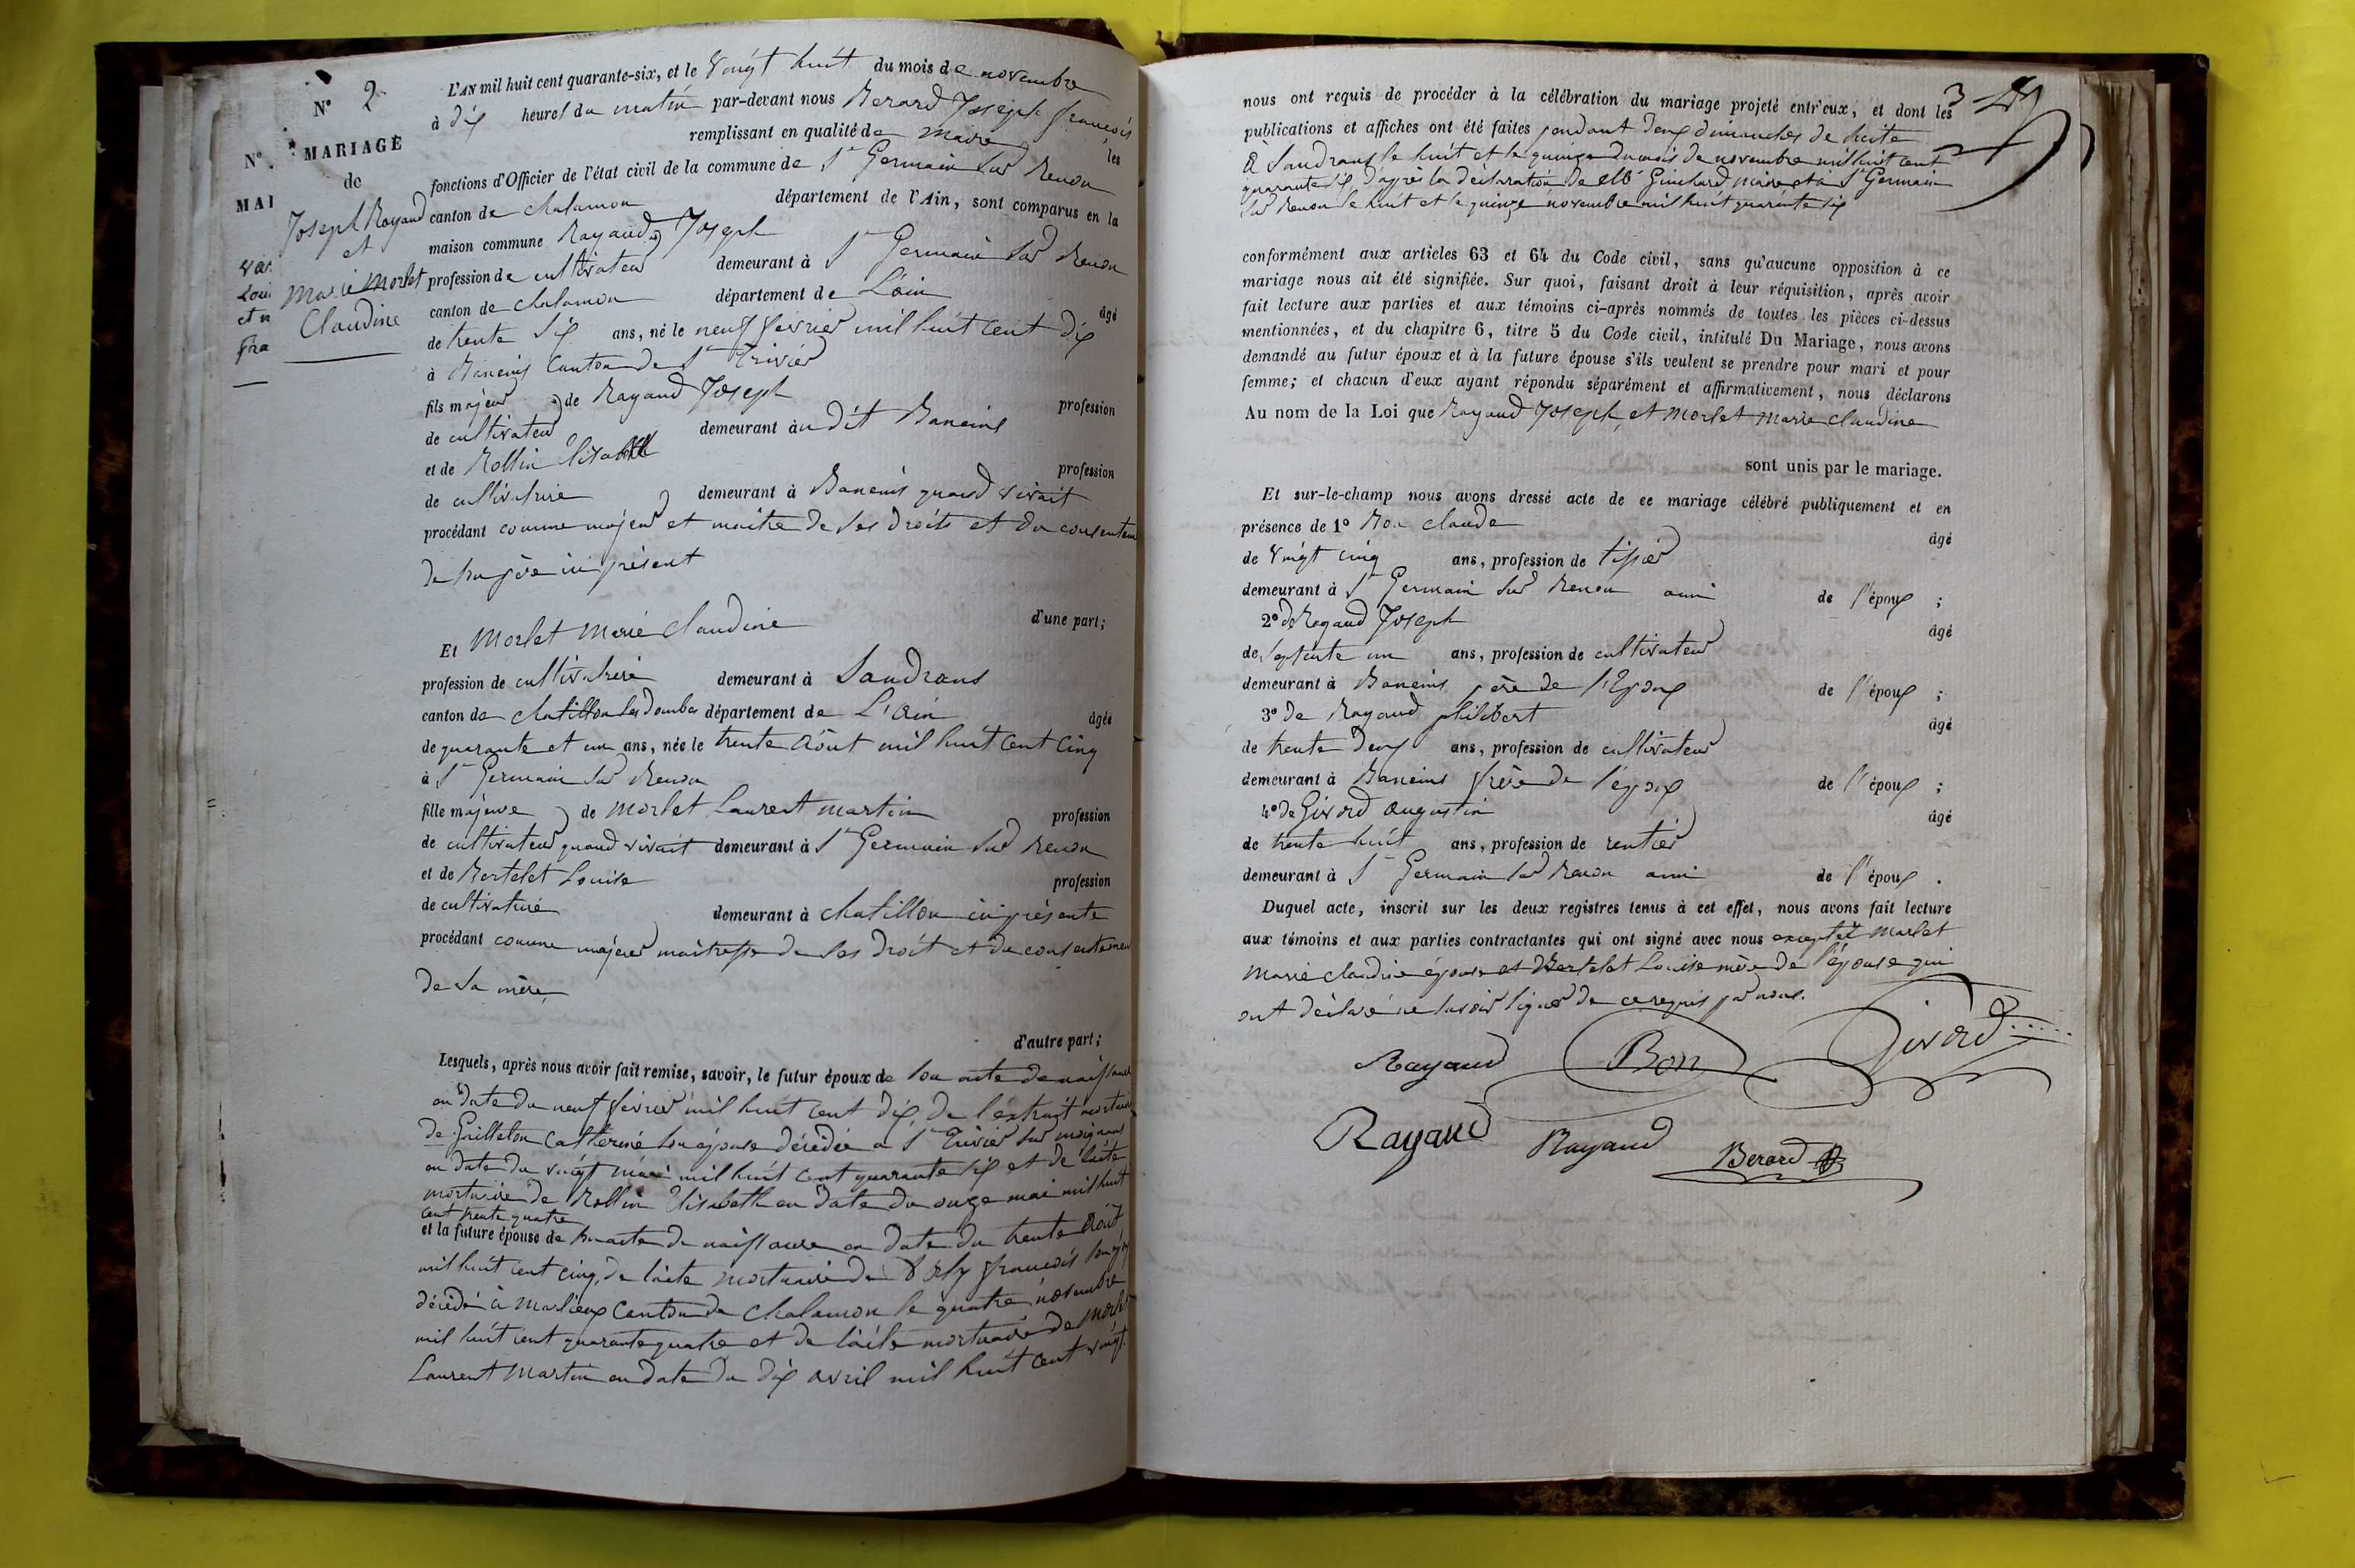 N° 2
MARIAGE
de
Joseph Rayaud
et
Marie Morlet
Claudine
N°.
MAI
L'AN mil huit cent quarante-six, et le vingt huit du mois de novembre
à dix heures du matin par-devant nous Berard Joseph françois
remplissant en qualité de maire les
fonctions d'Officier de l'état civil de la commune de St Germain sur Renon
canton de chalamon département de l'Ain, sont comparus en la
maison commune Rayaud Joseph
profession de cultivateur demeurant à St Germain sur Renon
canton de chalamon département de L'ain âgé
de trente six ans, né le neuf fevrier mil huit cent dix
à Baneins Canton de St Trivier
fils majeur de Rayaud Joseph profession
de cultivateur demeurant au dit Baneins
et de Rollin Elisabeth profession
de cultivatrice demeurant à Baneins quand vivait
procédant comme majeur et maitre de ses droits et du consentem
de son père ici présent
d'une part;
Et Morlet Marie Claudine
profession de cultivatrice demeurant à Sandrans
canton de chatillon les Dombes département de L'Ain âgée
de quarante et un ans, née le trente Aôut mil huit cent cinq
à St Germain sur Renon
fille majeure de Morlet Laurent Martin profession
de cultivateur quand vivait demeurant à St Germain sur Renon
et de Bertelet Louise profession
de cultivatrice demeurant à chatillon ici présente
procédant comme majeur maitresse de ses droit et du consentemen
de sa mère
d'autre part;
Lesquels, après nous avoir fait remise, savoir, le futur époux de son acte de naissance
en date du neuf fevrier mil huit cent dix, de l'extrait mortuaire
de Grilleton Catherine son épouse décédée a St Trivier sur moignans
en date du vingt mai mil huit cent quarante six et de l'acte
mortuaire de Rollin Elisabeth en date du onze mai mil huit
cent trente quatre
et la future épouse de son acte de naissance en date du trente Aôut
mil huit cent cinq, de l'acte mortuaire de françois son
décédé à Marlieux Canton de Chalamon le quatre novembre
mil huit cent quarante quatre et de l'acte mortuaire de Morlet
Laurent Martin en date du dix avril mil huit cent vingt
nous ont requis de procéder à la célébration du mariage projeté entr'eux, et dont les
publications et affiches ont été faites pendant deux dimanches de suite
A Sandrans le huit et le quinze du mois de novembre mil huit cent
quarante six, d'après la déclaration de Mr Guichard maire et à St Germain
sur Renon le huit et le quinze novembre mil huit quarante six
conformément aux articles 63 et 64 du Code civil, sans qu'aucune opposition à ce
mariage nous ait été signifiée. Sur quoi, faisant droit à leur réquisition, après avoir
fait lecture aux parties et aux témoins ci-après nommés de toutes les pièces ci-dessus
mentionnées, et du chapitre 6, titre 5 du Code civil, intitulé Du Mariage, nous avons
demandé au futur époux et à la future épouse s'ils veulent se prendre pour mari et pour
femme; et chacun d'eux ayant répondu séparément et affirmativement, nous déclarons
Au nom de la Loi que Rayaud Joseph, et Morlet Marie claudine
sont unis par le mariage.
Et sur-le-champ nous avons dressé acte de ce mariage célébré publiquement et en
présence de 1° Bon claude âgé
de vingt cinq ans, profession de tissier
demeurant à St Germain sur Renon ami de l'époux ;
2° de Rayaud Joseph âgé
de septente un ans, profession de cultivateur
demeurant à Baneins père de l'Epoux de l'époux ;
3° de Rayaud philibert âgé
de trente deux ans, profession de cultivateur
demeurant à Baneins frère de l'époux de l'époux ;
4° de Givord Augustin âgé
de trente huit ans, profession de rentier
demeurant à St Germain sur Renon ami de l'époux .
Duquel acte, inscrit sur les deux registres tenus à cet effet, nous avons fait lecture
aux témoins et aux parties contractantes qui ont signé avec nous excepter Morlet
Marie Claudine épouse et Bertelet Louise mère de l'épouse qui
ont déclaré ne savoir signer de ce requis par nous.
Rayaud Bon Givord
Rayaud Rayaud Berard